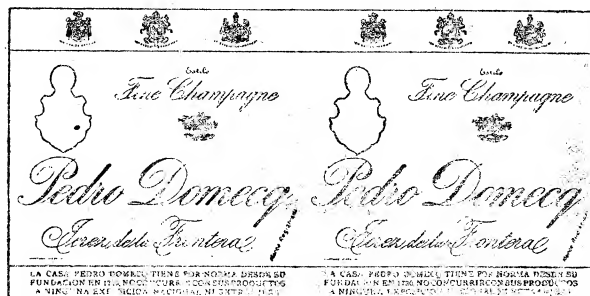 Estilo
Fine Champagne
Pedro Domecq
Jerez de la Frontera
LA CASA PEDRO DOMECQ TIENE POR NORMA DESDE SU
FUNDACION EN 1730, NO CONCURRIR CON SUS PRODUCTOS
A NINGUNA EXPOSICION NACIONAL NI EXTRANJERA
Estilo
Fine Champagne
Pedro Domecq
Jerez de la Frontera
LA CASA PEDRO DOMECQ TIENE POR NORMA DESDE SU
FUNDACION EN 1730, NO CONCURRIR CON SUS PRODUCTOS
A NINGUNA EXPOSICION